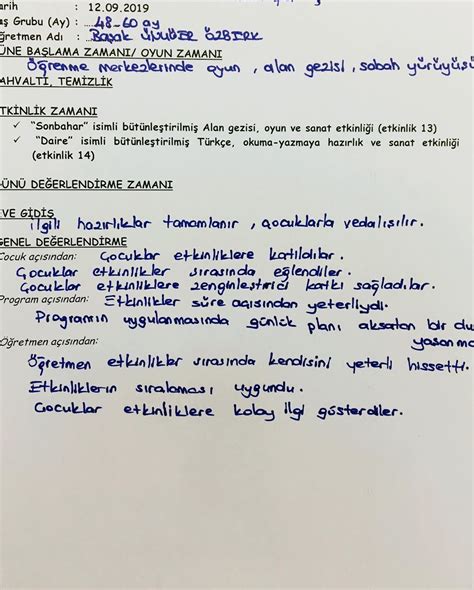 arih : 12.09.2019
aş Grubu (Ay) : ....48-60 ay
ğretmen Adı : ..Başak
ÜNE BAŞLAMA ZAMANI/ OYUN ZAMANI
Öğrenme merkezlerinde oyun , alan gezisi , sabah yürüyüşü
AHVALTİ, TEMİZLİK
TKİNLİK ZAMANI
✓ "Sonbahar" isimli bütünleştirilmiş Alan gezisi, oyun ve sanat etkinliği (etkinlik 13)
✓ "Daire" isimli bütünleştirilmiş Türkçe, okuma-yazmaya hazırlık ve sanat etkinliği
(etkinlik 14)
ÜNÜ DEĞERLENDİRME ZAMANI
VE GİDİŞ
İlgili hazırlıklar tamamlanır , çocuklarla vedalışılır.
GENEL DEĞERLENDİRME
Çocuk açısından: Çocuklar etkinliklere katıldılar.
Çocuklar etkinlikler sırasında eğlendiler.
Çocuklar etkinliklere zenginleştirici katkı sağladılar.
Program açısından: Etkinlikler süre açısından yeterliydi.
Programın uygulanmasında günlük planı aksatan bir du
yaşanma
Öğretmen açısından:
Öğretmen etkinlikler sırasında kendisini yeterli hissetti.
Etkinliklerin sıralaması uygundu.
Çocuklar etkinliklere kolay ilgi gösterdiler.